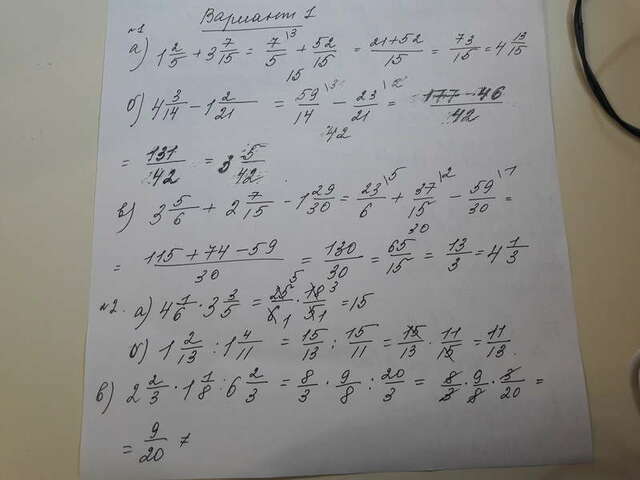 Вариант 1
№1
а) 1 2/5 + 3 7/15 = 7/5 \3 + 52/15 = 21+52/15 = 73/15 = 4 13/15
15
б) 4 3/14 - 1 2/21 = 59/14 \3 - 23/21 \2 = 177-46/42
42
= 131/42 = 3 5/42
в) 3 5/6 + 2 7/15 - 1 29/30 = 23/6 \5 + 37/15 \2 - 59/30 \1 =
30
= 115+74-59/30 = 130/30 = 65/15 = 13/3 = 4 1/3
№2. а) 4 1/6 · 3 3/5 = 25/6 · 18/5 = 15
б) 1 2/13 : 1 4/11 = 15/13 : 15/11 = 15/13 · 11/15 = 11/13
в) 2 2/3 · 1 1/8 : 6 2/3 = 8/3 · 9/8 : 20/3 = 8/3 · 9/8 · 3/20 =
= 9/20